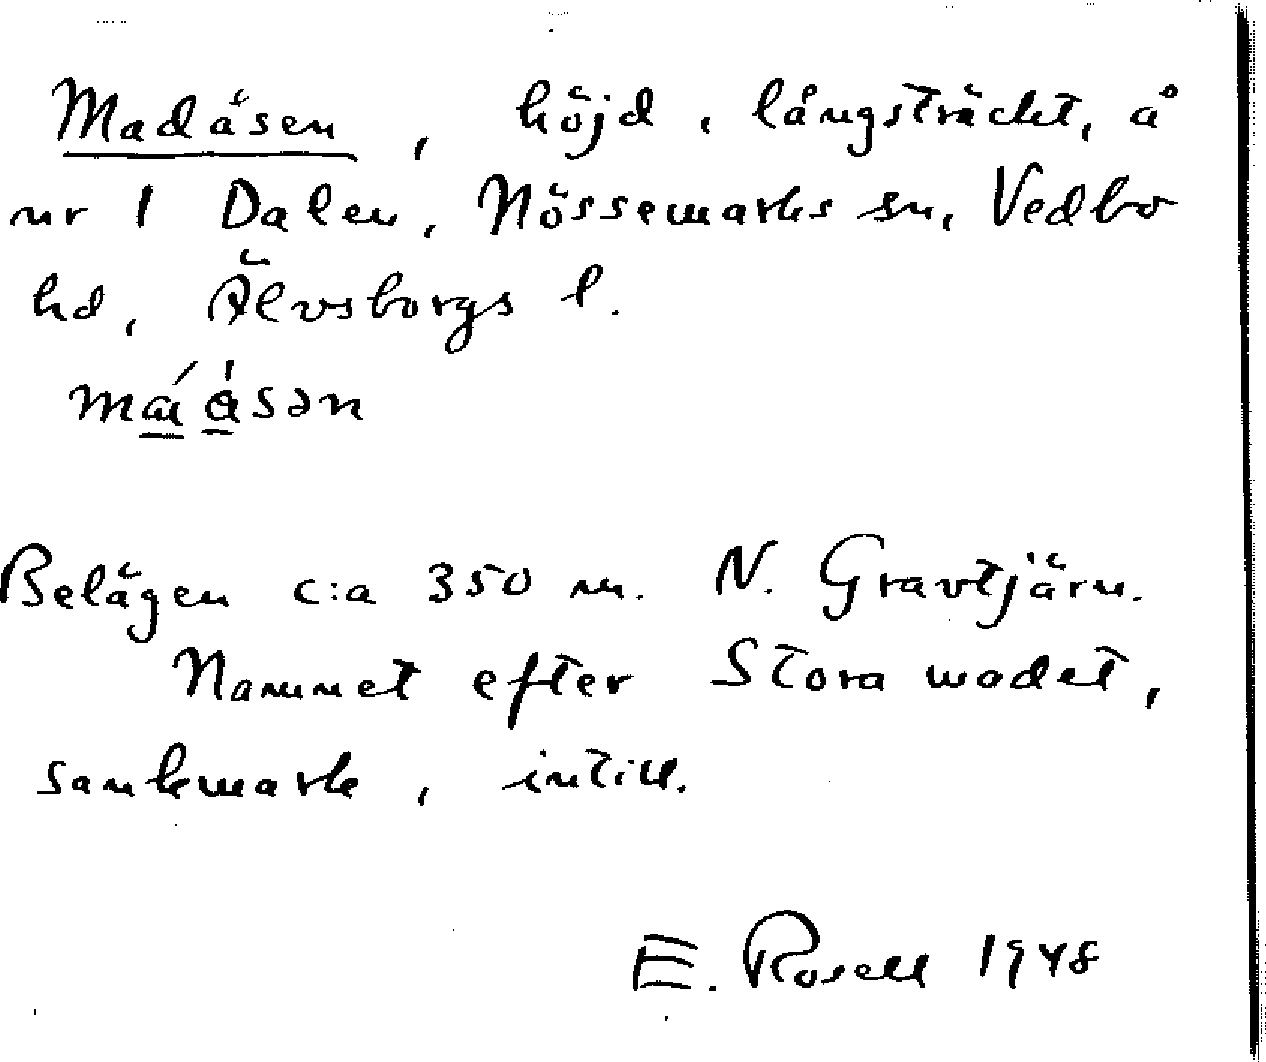 Madåsen, höjd, långsträckt, å
nr 1 Dalen, Nössemarks sn, Vedbo
hd, Älvsborgs l.
Belägen c:a 350 m. N. Gravtjärn.
Namnet efter Stora madet,
sankmark, intill.
E. Rosell 1948